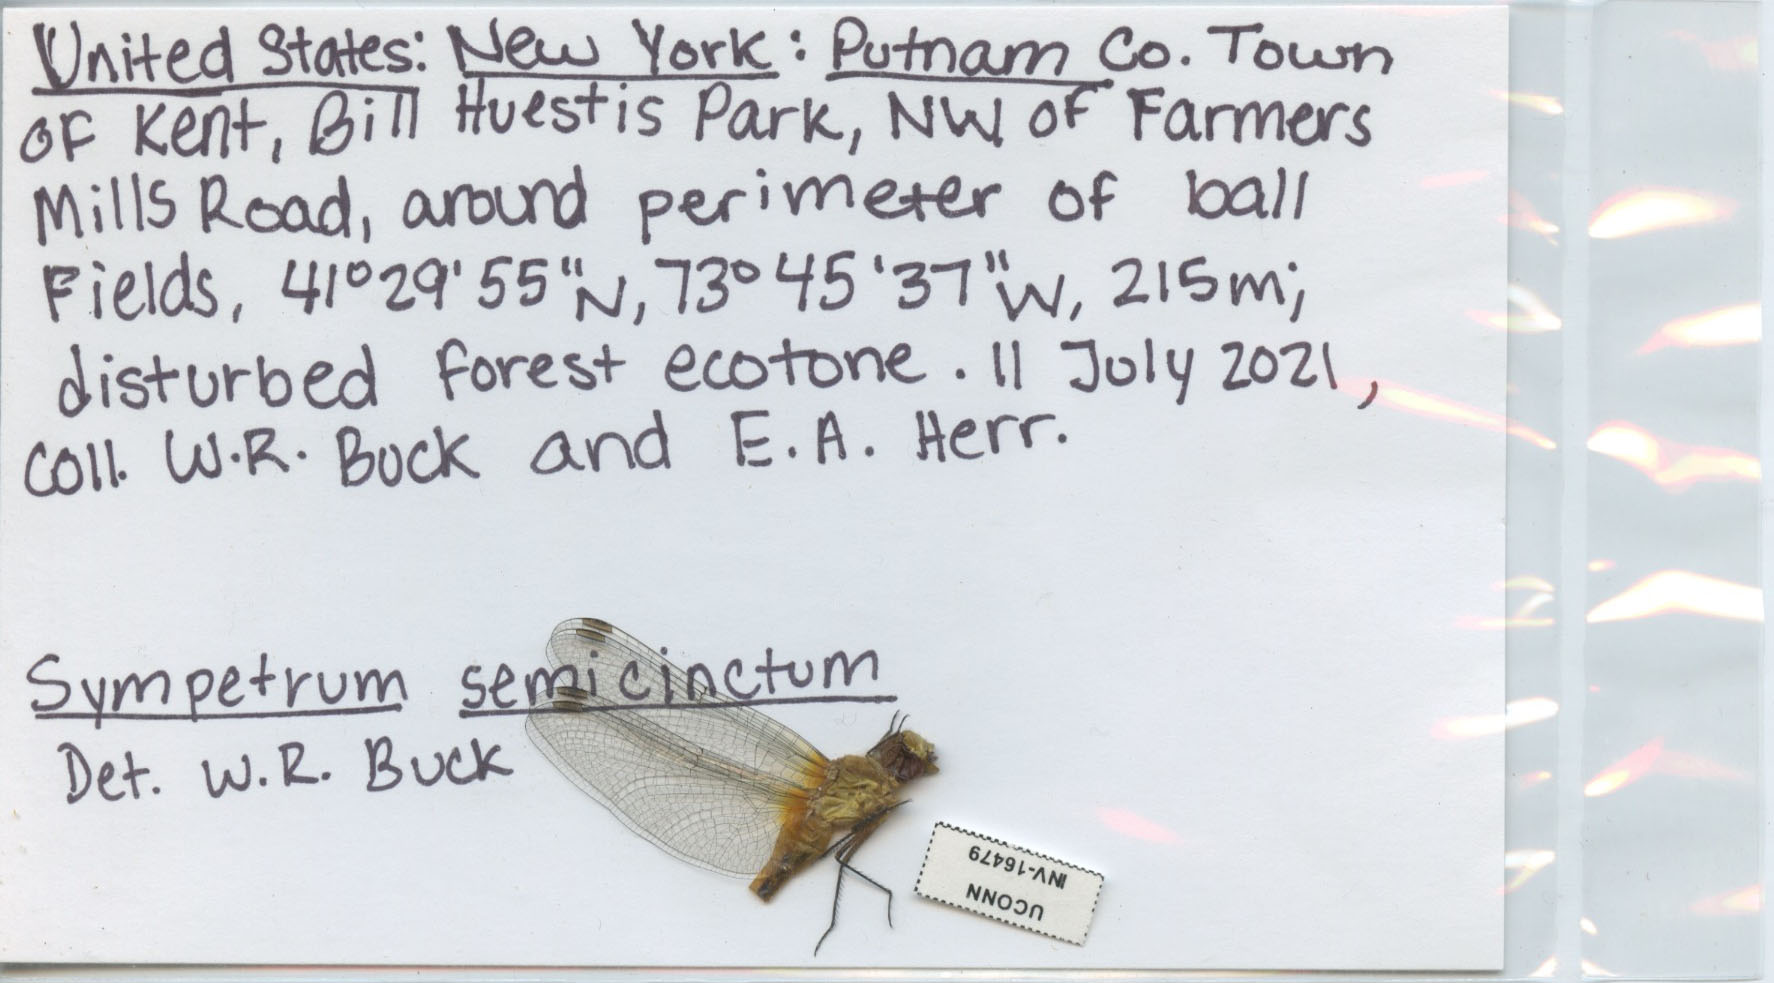 United States: New York: Putnam Co. Town
of Kent, Bill Huestis Park, NW of Farmers
Mills Road, around perimeter of ball
Fields, 41°29'55"N, 73°45'37"W, 215m;
disturbed forest ecotone. 11 July 2021,
coll. W.R. Buck and E.A. Herr.
Sympetrum semicinctum
Det. W.R. Buck
UCONN
INV-16479